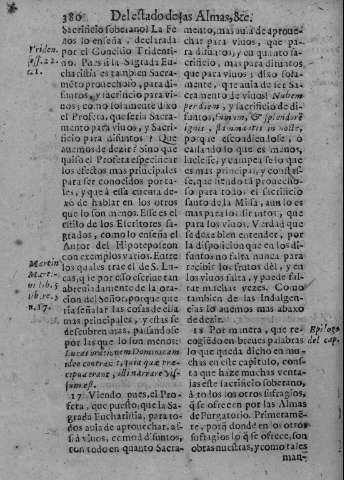 380 Del estado de las Almas, &c.
Sacrificio soberano! La Fe
nos lo enseña, declarada
por el Concilio Tridentino.
Pues si la Sagrada Eucharistia
es tambien Sacramẽto
provechoso, para difuntos,
y sacrificio para vivos;
como solamente dixo
el Profeta, que seria Sacramento
para vivos, y Sacrificio
para difuntos? Que
auemos de dezir? Sino que
quiso el Profeta especificar
los efectos mas principales
para ser conocidos por
tales, y que à essa cuenta dexò
de hablar en los otros
que lo son menos. Esse es el
estilo de los Escritores sagrados,
como lo enseña el
Autor del Hipoteposeon
con exemplos varios. Entre
los quales trae el de S. Lucas,
que por esso escriue tan
abreuiadamente la oracion
del Señor, porque queria
señalar las cosas de essa
mas principales, y estas se
descubren mas, passandose
por las que lo son menos:
Lucas orationem Dominicam
ideo contraxit, vt ea quæ præcipua
erant, illi narrare visum
est.
17 Viendo pues, el Profeta,
que puesto, que la Sagrada
Eucharistia, para todos
auia de aprouechar, assi
à viuos, como à difuntos,
con todo en quanto Sacramento,
mas auia de aprouechar
para viuos, que para
difuntos, y en quanto sacrificio,
mas para difuntos,
que para viuos; dixo solamente,
que auia de ser Sacramento
de viuos: Nubem
per diem, y sacrificio de difuntos,
fumum, & splendorẽ
ignis, flammantis in nocte,
porque escondiendose, ò
callando lo que es menos,
luciesse, y campeasse lo que
es mas principal, y constasse,
que siendo tã prouechoso
para todos el sacrificio
santo de la Missa, aun lo es
mas para los difuntos, que
para los viuos. Verdad que
se deue bien entender, por
la disposicion que en los difuntos
no falta nunca para
recibir los frutos dèl, y en
los viuos falta, y puede faltar
muchas vezes. Como
tambien de las Indulgencias
lo auemos mas abaxo
de dezir.
18 Para que, recogiendo
en breues palabras
lo que queda dicho en mucha
en este capitulo, consta
que haze muchas ventajas
este sacrificio soberano,
à todos los otros sufragios,
q̃ se ofrecen por las Almas
de Purgatorio. Primeramẽte,
porq̃ donde en los otros
sufragios lo q̃ se ofrece, son
obras nuestras, y como tales
man-
Triden.
sess. 22.
c. 1.
Martin
Marti-
ni lib. 5
n. 17.
Epilogo
del cap.